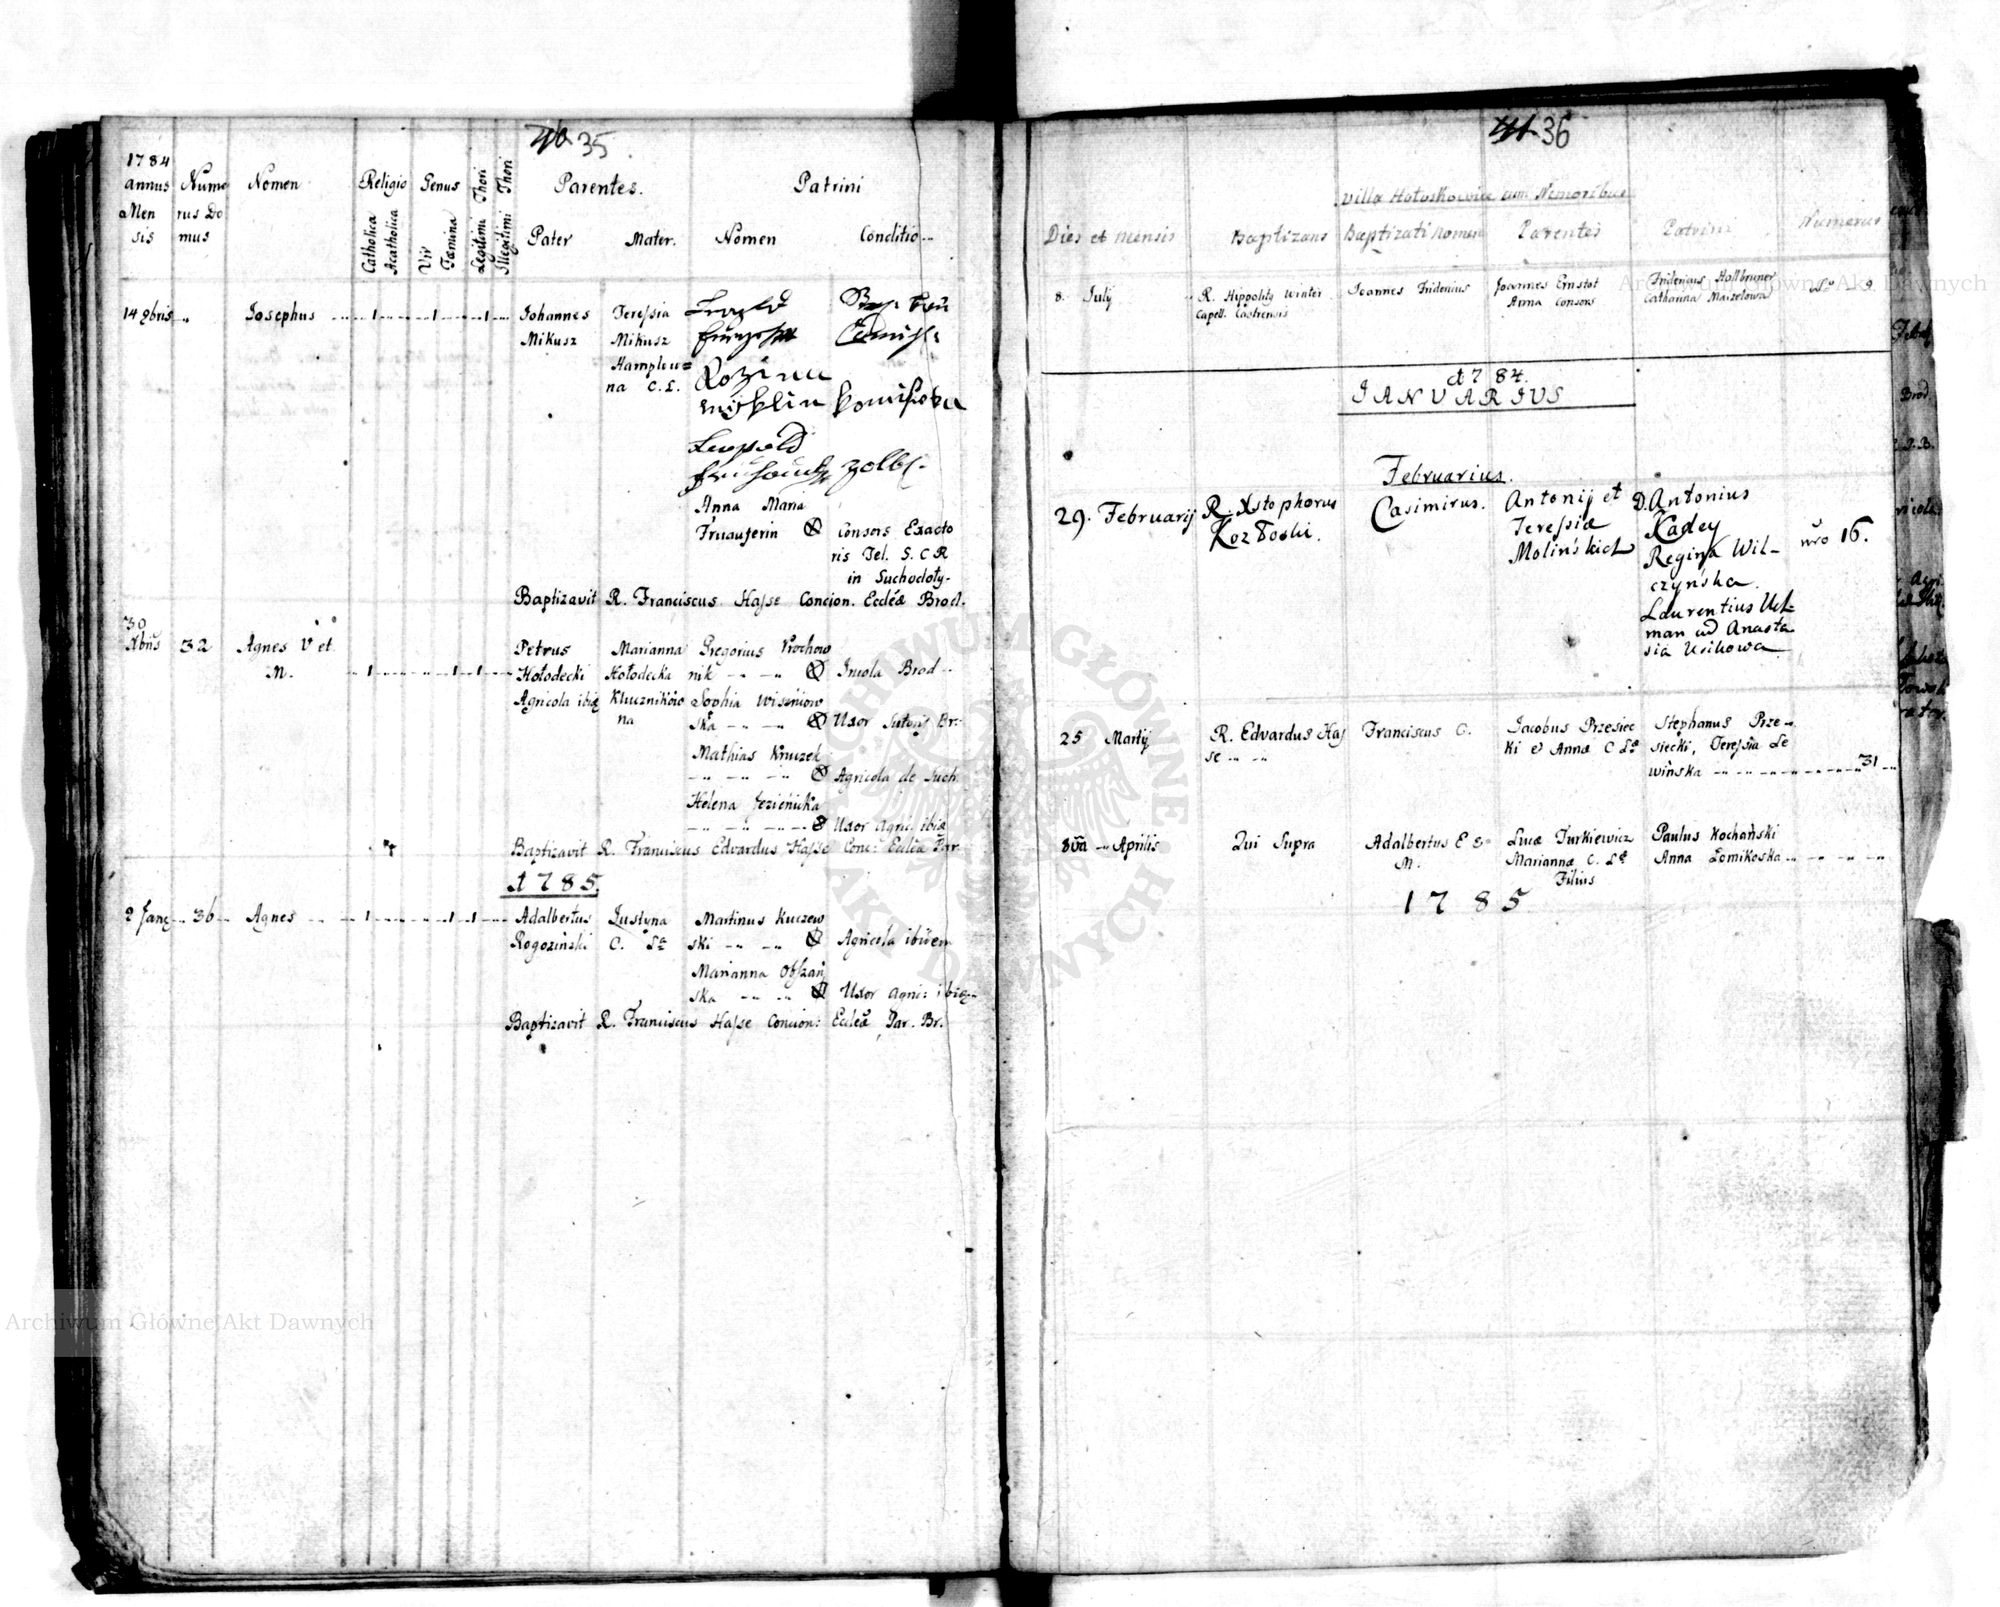 35
1784
annus
Mensis
Numerus Domus
Nomen
Religio
Catholica
Acatholica
Genus
Vir
Fæmina
Legitimi Thori
Illegitimi Thori
Parentes.
Pater
Mater.
Patrini
Nomen
Conditio
14 9bris
Josephus
1 1 1
Johannes
Mikusz
Teressia
Mikusz
na C. L.
Leopold
Anna Maria
Consors Exacto
ris Tel. S. C. R
in Suchodoły
Baptizavit R. Franciscus Hasse Concion. Eccleæ Brod.
30
Xbris
32
Agnes V et
M.
1 1 1
Petrus
Hołodecki
Agricola ibid
Marianna
Hołodecka
Kluczników
na
Gregorius Prochow
nik
Incola Brod
Sophia Wiszniow
ska
Uxor Sutoris Br:
Mathias Kruczek
Agricola de Such
Helena Jezienicka
Uxor Agric. ibid
Baptizavit R. Franciscus Edvardus Hasse Conc: Eccleæ Par
A 1785.
2 Jang
36
Agnes
1 1 1
Adalbertus
Rogozinski
Justyna
C. La
Martinus Kuczew
ski
Agricola ibidem
Marianna
ska
Uxor Agric: ibid
Baptizavit R. Franciscus Hasse Concion: Eccleæ Par. Br.
36
Villa Hołoskowice cum Nemoribus
Dies et Mensis
Baptizans
Baptizati Nomen
Parentes
Patrini
Numerus
8. July
R. Hippolity Winter
Capell. Castrensis
Joannes Fridericus
Joannes Ernstot
Anna Consors
Fridericus Hallbruner
Catharina Maizelowa
9
A 1784.
IANVARIUS
Februarius.
29. Februarij
R. Xstophorus
Kozłoski.
Casimirus.
Antonij et
Teressiæ
Molinskich
D. Antonius
Kadey
Regina Wil-
czyńska.
Laurentius
man cu Anasta
sia
nro 16.
25 Martij
R. Edvardus Has
se
Franciscus C.
Jacobus Przesiec
ki & Annæ C La
Stephanus Prze-
siecki, Teressia Le
winska
31
8va Aprilis
Qui Supra
Adalbertus E &
M.
Lucæ Turkiewicz
Mariannæ C. La
Filius
Paulus Kochański
Anna Łomikoska
1785
Archiwum Główne Akt Dawnych
Archiwum Główne Akt Dawnych
ARCHIWUM GŁÓWNE AKT DAWNYCH